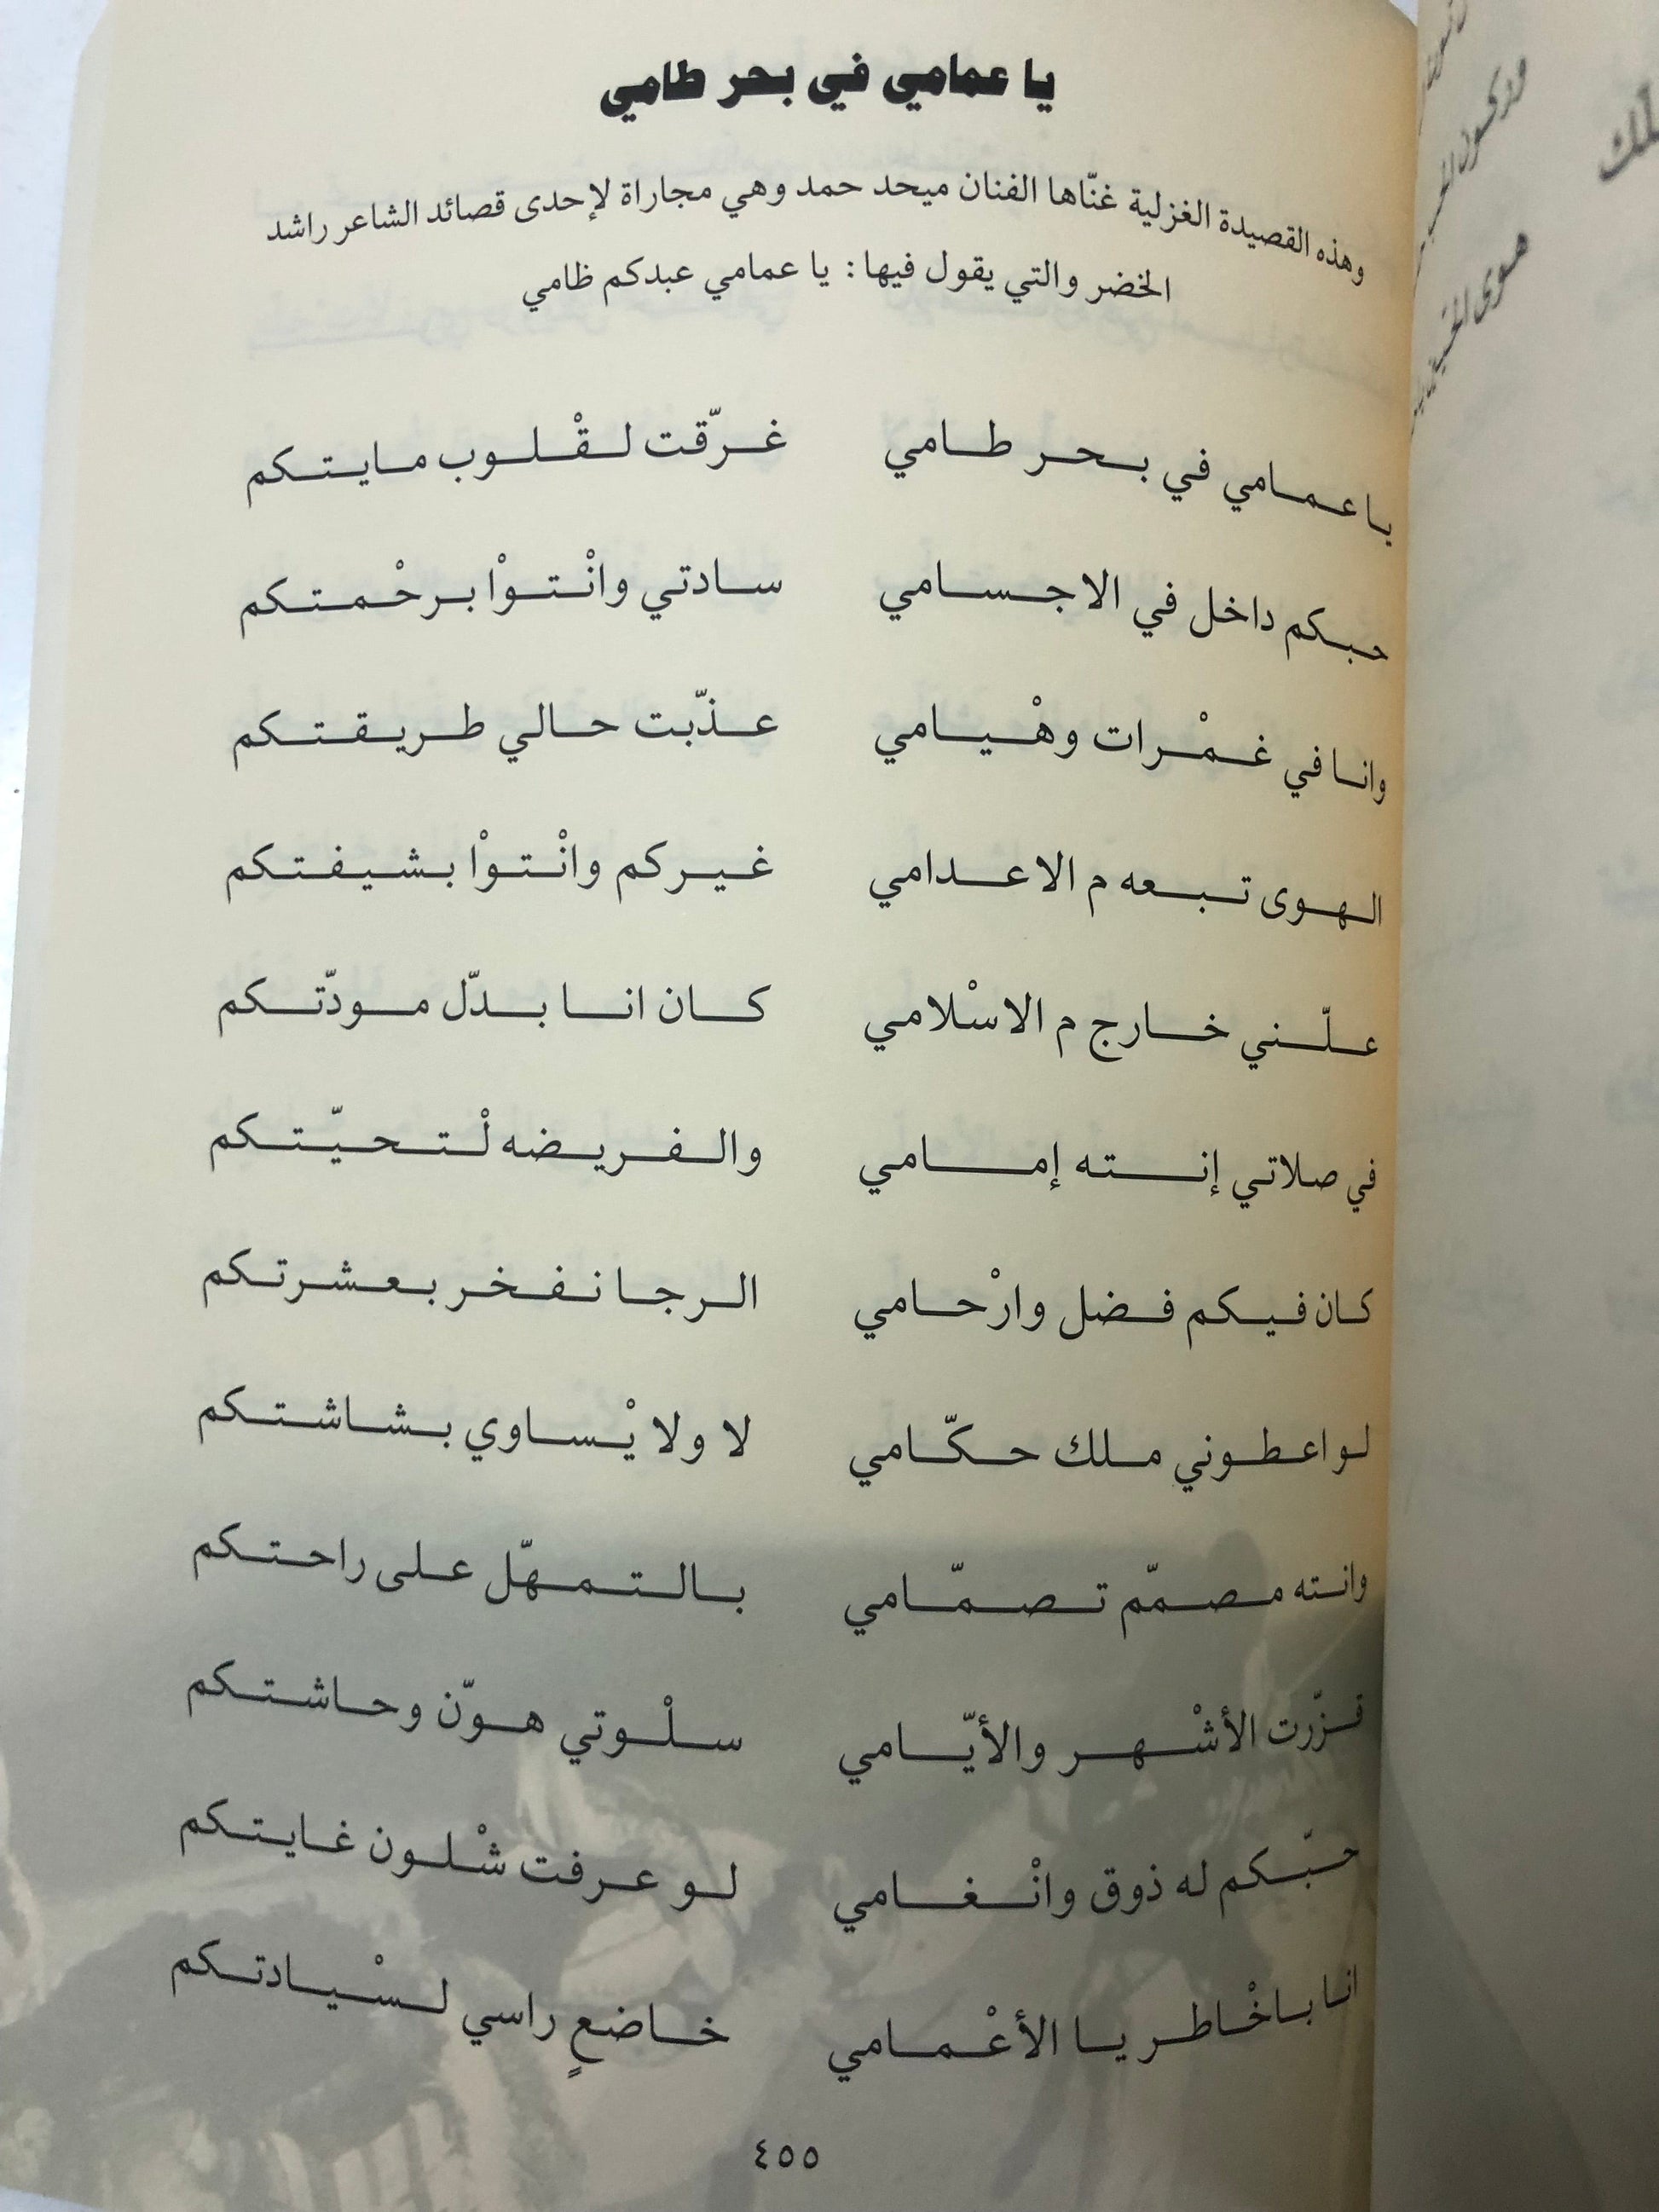 يا عمامي في بحر طامي
وهذه القصيدة الغزلية غنّاها الفنان ميحد حمد وهي مجاراة لإحدى قصائد الشاعر راشد
الخضر والتي يقول فيها: يا عمامي عبدكم ظامي
يا عمامي في بحر طامي غرّقت لقْلوب مايتكم
حبكم داخل في الاجسامي سادتي وانْتوْا برحْمتكم
وانا في غمْرات وهْيامي عذّبت حالي طريقتكم
الهوى تبعه م الاعدامي غيركم وانْتوْا بشيفتكم
علّني خارج م الاسْلامي كان انا بدّل مودّتكم
في صلاتي إنته إمامي والفريضه لْتحيّتكم
كان فيكم فضل وارْحامي الرجا نفخر بعشرتكم
لو اعطوني ملك حكّامي لا ولا يْساوي بشاشتكم
وانته مصمّم تصمّامي بالتمهّل على راحتكم
قزّرت الأشْهر والأيّامي سلْوتي هوّن وحاشتكم
حبّكم له ذوق وانْغامي لو عرفت شْلون غايتكم
انا باخْاطر يا الأعْمامي خاضعٍ راسي لسْيادتكم
٤٥٥